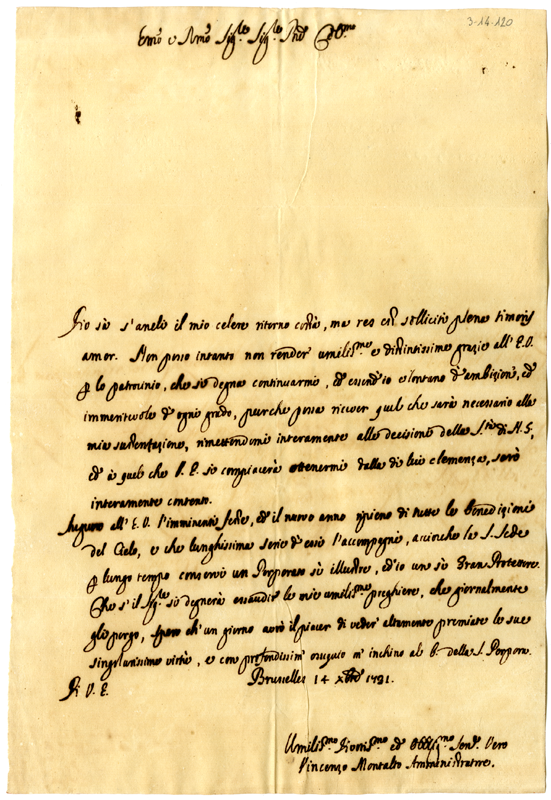 3-14-120
Emo e Rmo Sigre Sigre Pne Colmo
Dio sà s'anelo il mio celere ritorno costà, ma res est solliciti plena timoris
amor. Non posso intanto non render umilissme e distintissime grazie all'E.V.
p lo patrocinio, che si degna continuarmi, ed essend'io lontano d'ambizioni, ed
immeritevole d'ogni grado, purche possa ricever quel che sarà necessario alla
mia sustentazione, rimettendomi interamente alle decisioni della S.tà di N.S.,
ed à quel che V.E. si compiacerà ottenermi dalla di lui clemenza, sarò
interamente contento.
Auguro all'E.V. l'imminenti feste, ed il nuovo anno ripieno di tutte le benedizioni
del Cielo, e che lunghissima serie d'essi l'accompagni, accioche la S. Sede
p lungo tempo conservi un Porporato sì illustre, ed io un sì gran Protettore.
Che s'il Sigre si degnerà essaudir le mie umilissme preghiere, che giornalmente
gli porgo, spero ch'un giorno avrò il piacer di veder altamente premiate le sue
singolarissime virtù, e con profondissim' ossequio m'inchino al b. della S. Porpora.
Di V.E. Bruselles 14 Xbre 1731.
Umilissmo Divotismo ed Obbligmo Send. Vero
Vincenzo Montalto Amministratore.